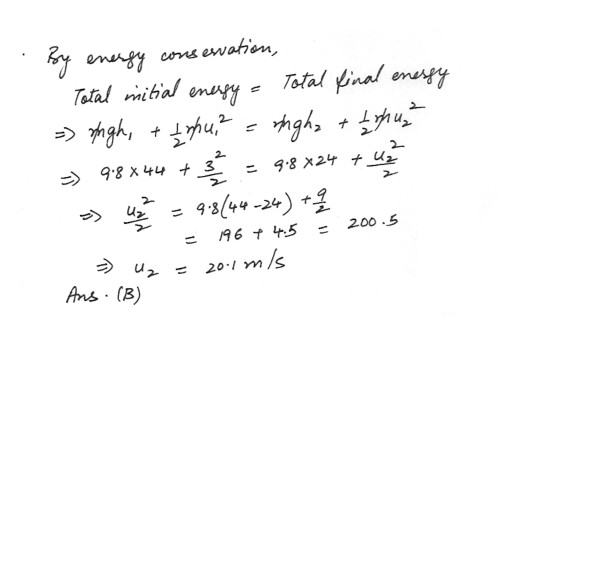 By energy conservation,
Total initial energy = Total final energy
=> mgh₁ + 1/2 mu₁² = mgh₂ + 1/2 mu₂²
=> 9.8 x 44 + 3²/2 = 9.8 x 24 + u₂²/2
=> u₂²/2 = 9.8(44 - 24) + 9/2
= 196 + 4.5 = 200.5
=> u₂ = 20.1 m/s
Ans. (B)